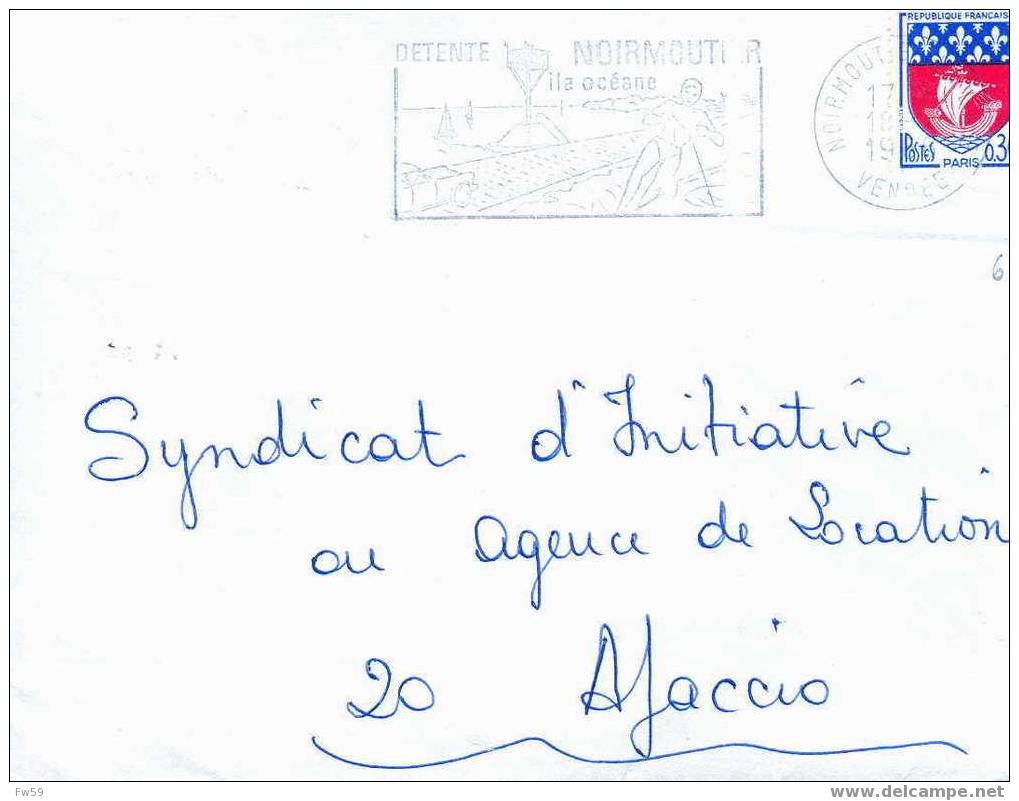 DETENTE NOIRMOUTI R
île océane
REPUBLIQUE FRANÇAIS
NOIRMOUT
17
19
VENDEE
POSTES PARIS 0.3
6
Syndicat d'Initiative
ou Agence de Location
20 Ajaccio
Fw59
www.delcampe.net